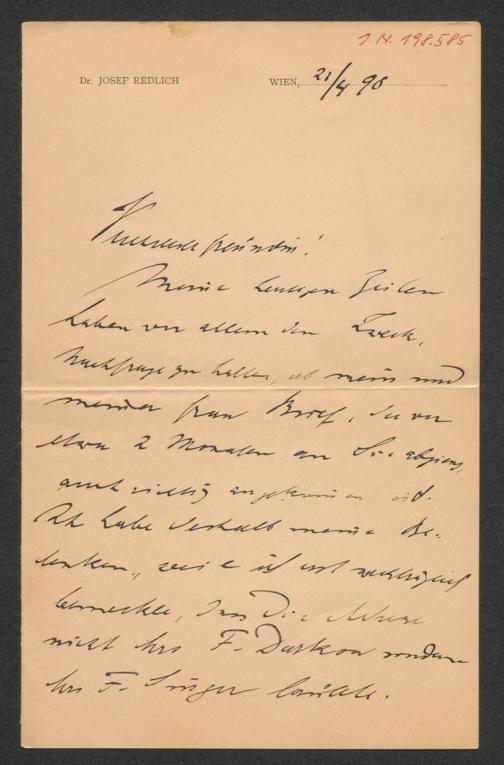 J.N. 198.585
Dr. JOSEF REDLICH WIEN, 21/4 98
Verehrteste Freundin!
Meine heutigen Zeilen
haben vor allem den Zweck,
Nachfrage zu halten, ob mein und
meiner Frau Brief, der vor
etwa 2 Monaten an Sie abgieng,
auch richtig angekommen ist.
Ich habe deshalb meine Be-
denken, weil ich erst nachträglich
bemerkte, dass die Adresse
nicht Mrs F. sondern
Mrs F. Singer lautete.